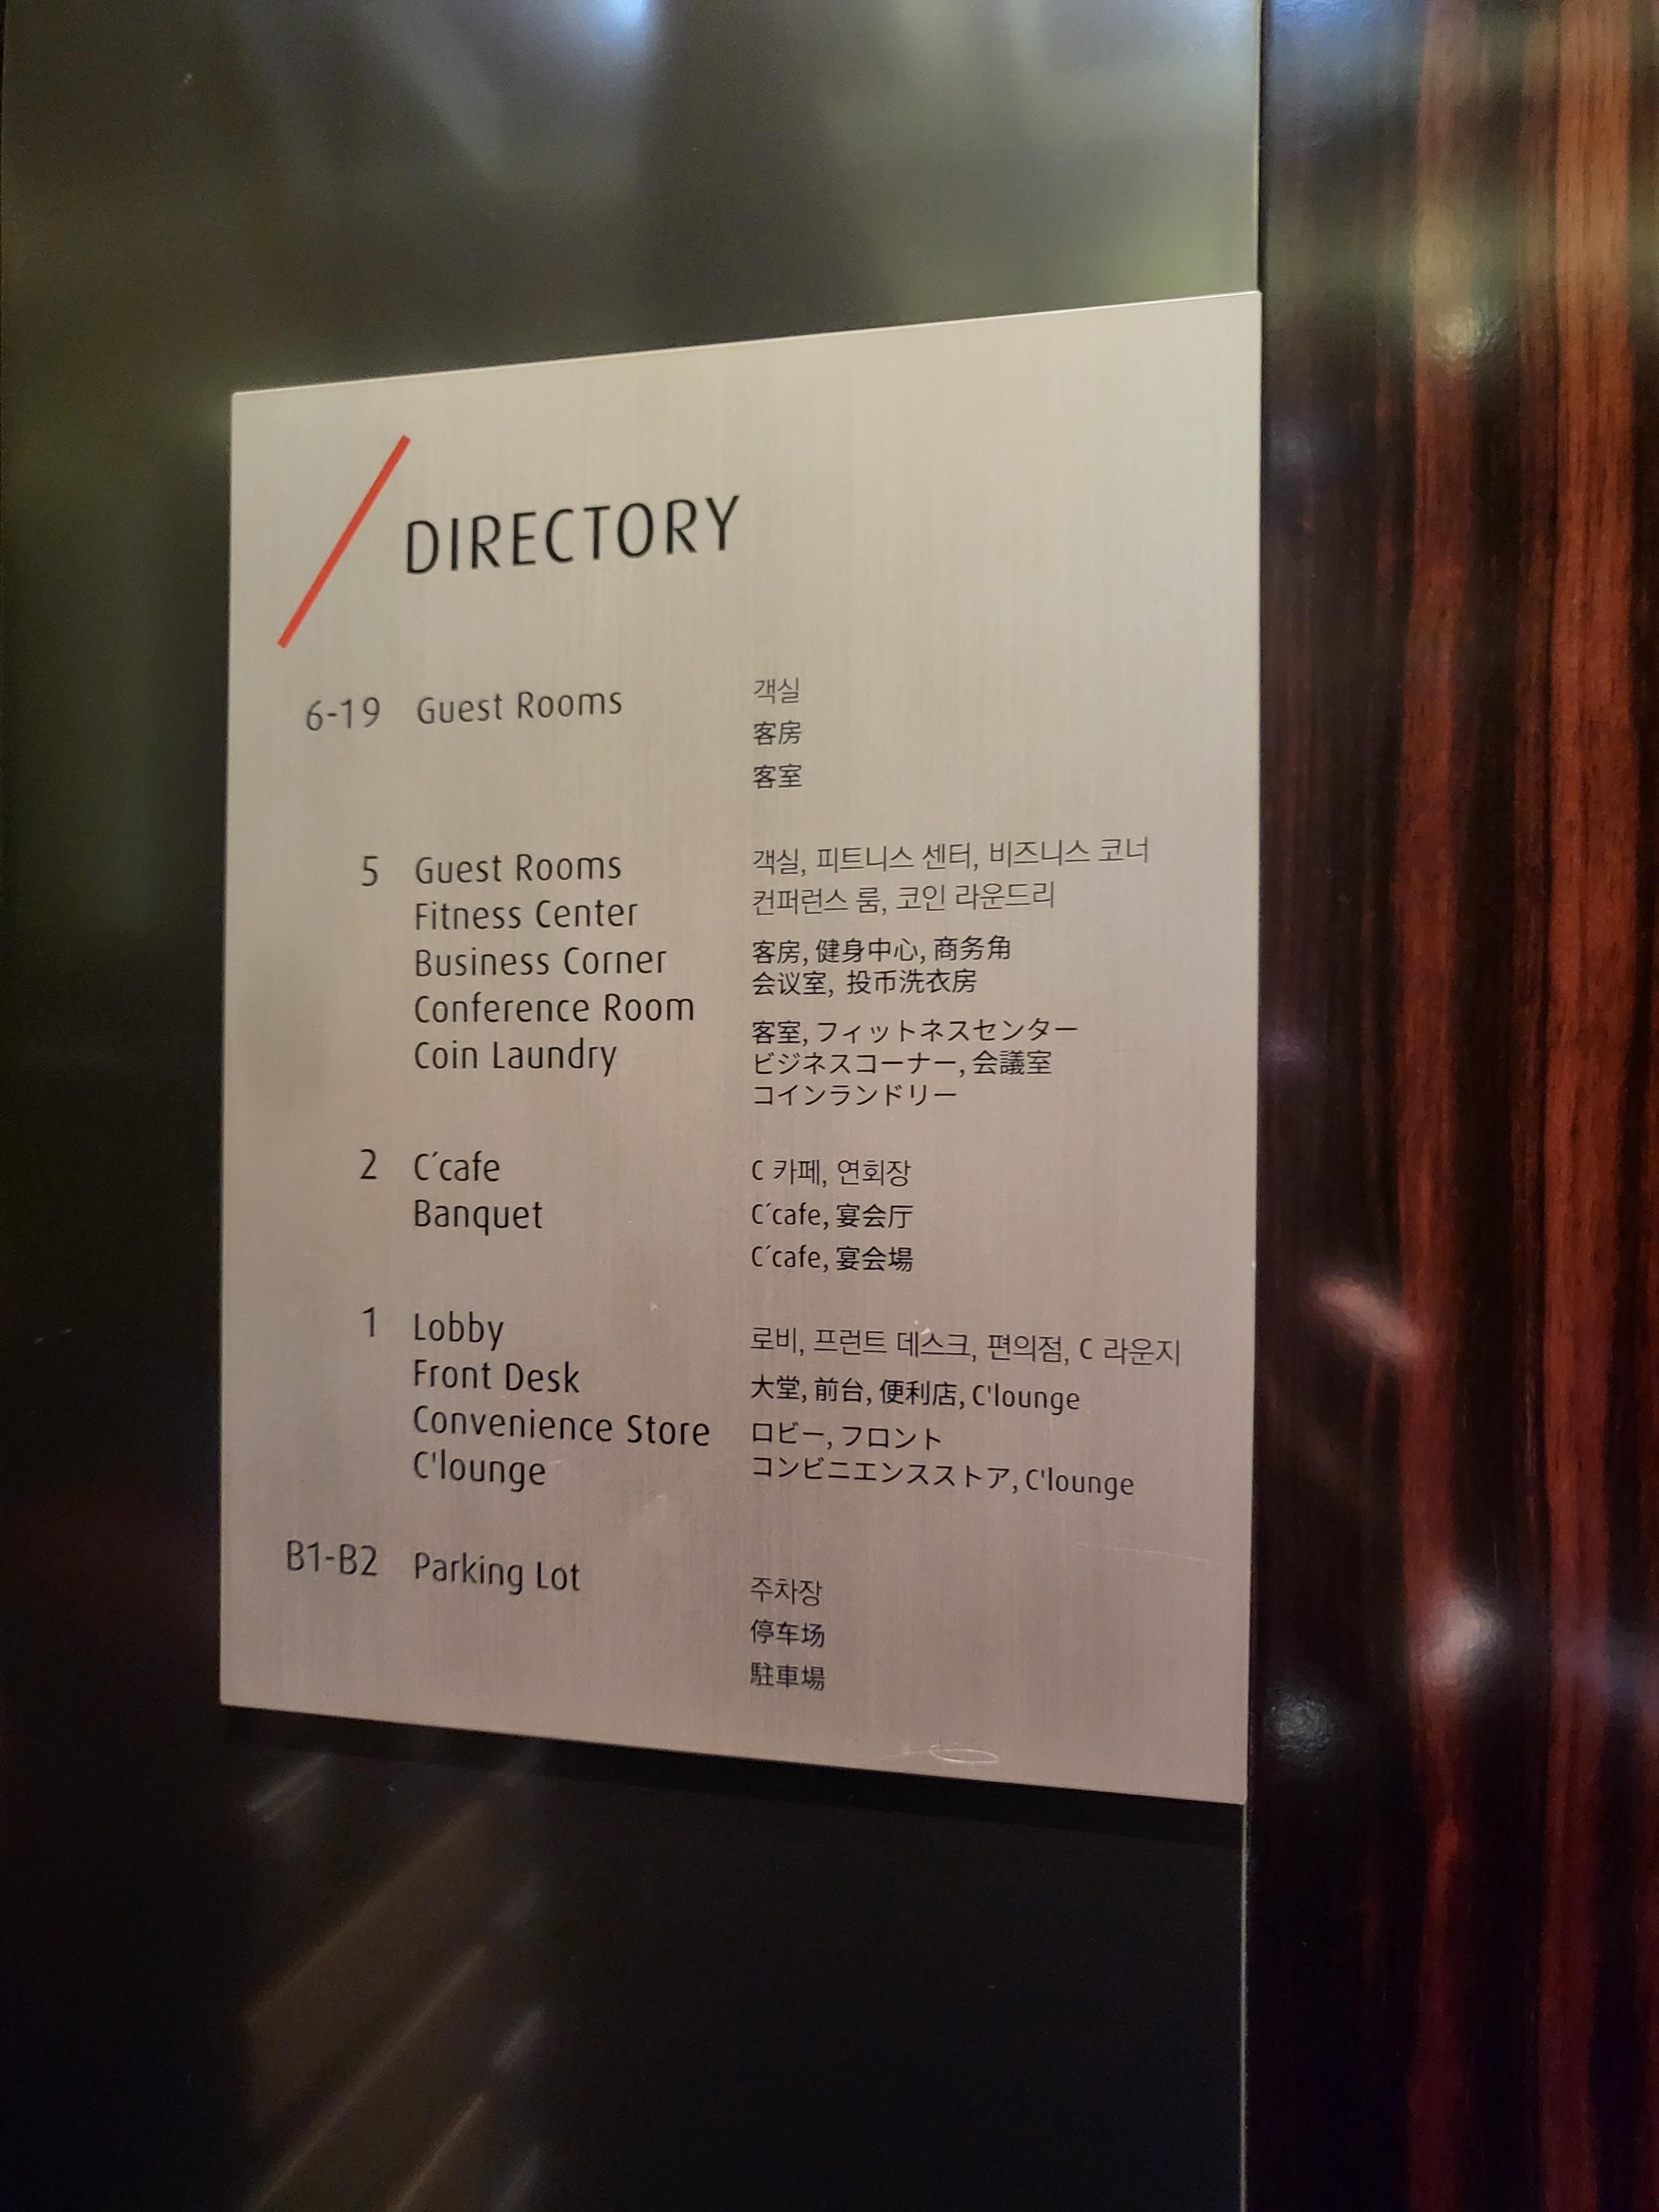 DIRECTORY
6-19 Guest Rooms
객실
客房
客室
5 Guest Rooms
Fitness Center
Business Corner
Conference Room
Coin Laundry
객실, 피트니스 센터, 비즈니스 코너
컨퍼런스 룸, 코인 라운드리
客房, 健身中心, 商务角
会议室, 投币洗衣房
客室, フィットネスセンター
ビジネスコーナー, 会議室
コインランドリー
2 C´cafe
Banquet
C 카페, 연회장
C´cafe, 宴会厅
C´cafe, 宴会場
1 Lobby
Front Desk
Convenience Store
C'lounge
로비, 프런트 데스크, 편의점, C 라운지
大堂, 前台, 便利店, C'lounge
ロビー, フロント
コンビニエンスストア, C'lounge
B1-B2 Parking Lot
주차장
停车场
駐車場